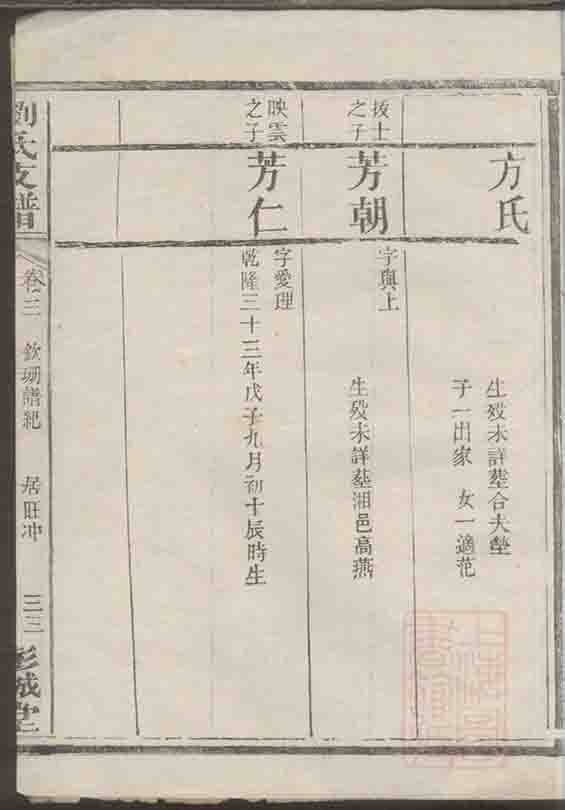 方氏
生歿未詳塟合夫塋
子一出家 女一適范
拔士
之子
芳朝
字與上
生歿未詳塟湘邑高燕
映雲
之子
芳仁
字愛理
乾隆三十三年戊子九月初十辰時生
劉氏支譜
卷三 欽珊譜紀 居旺冲 三三 彭城堂